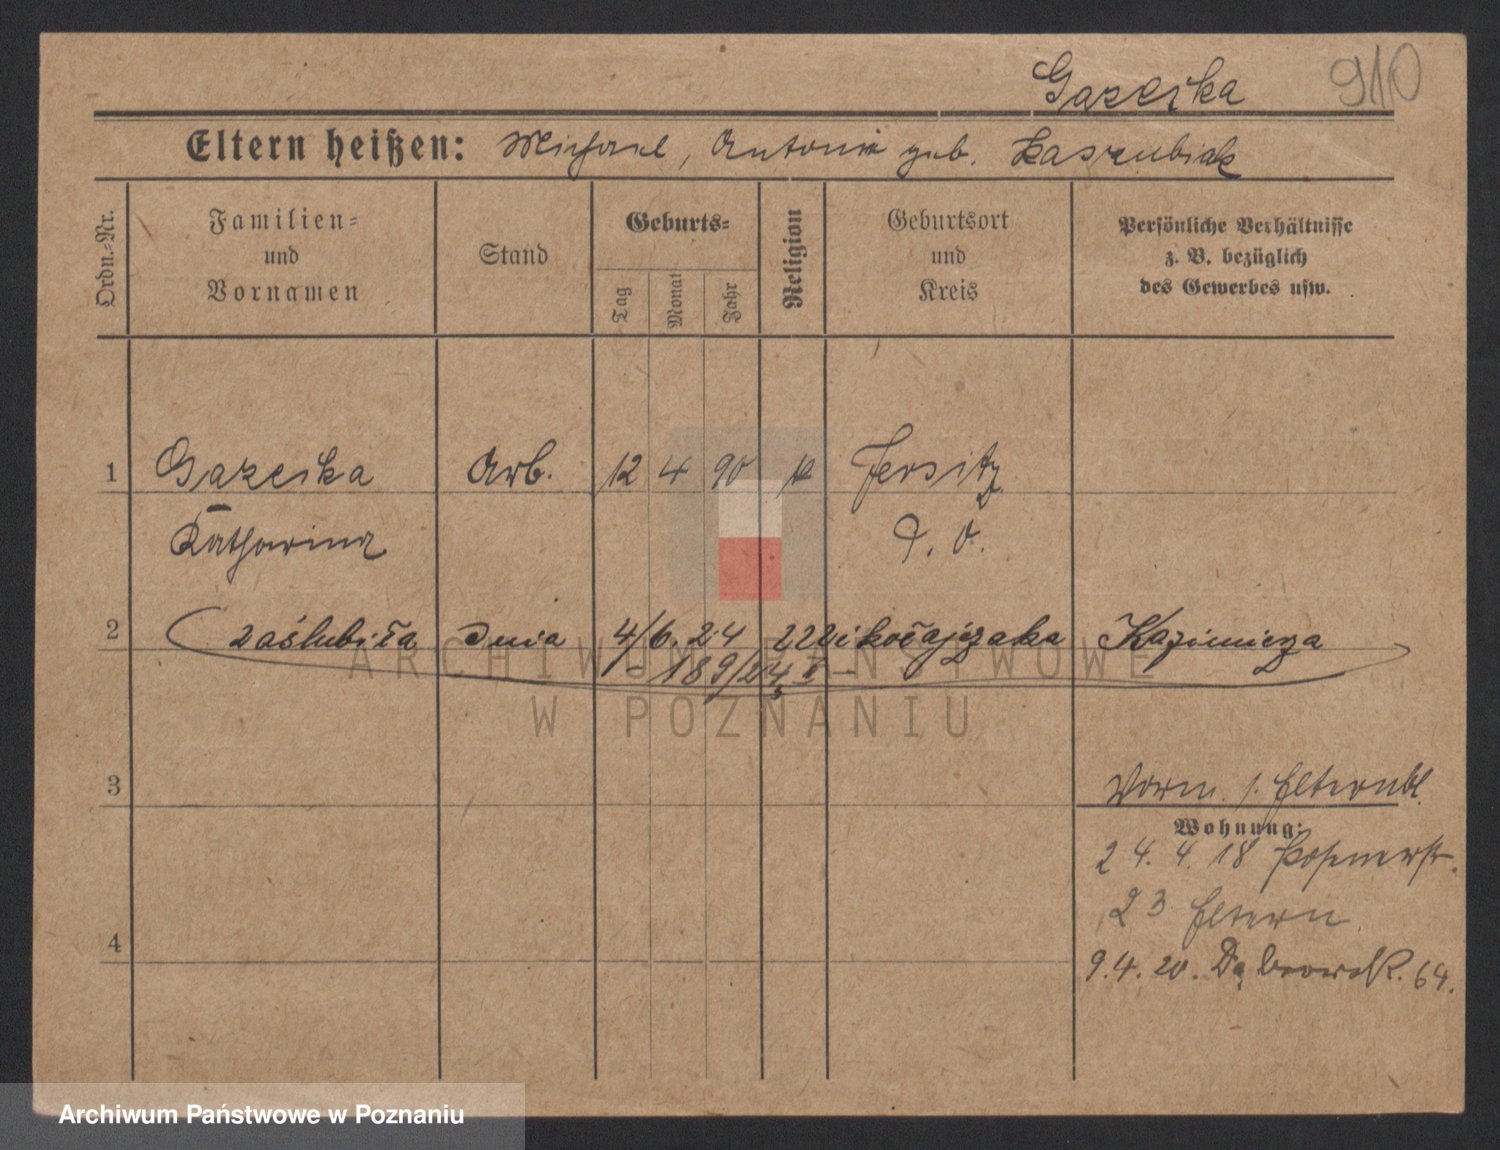 Gazecka 910
Eltern heißen: Michael, Antonie geb. Kaszubiak
Ordn.-Nr.
Familien-
und
Vornamen
Stand
Geburts-
Tag
Monat
Jahr
Religion
Geburtsort
und
Kreis
Persönliche Verhältnisse
z. B. bezüglich
des Gewerbes usw.
1 Gazecka Arb. 12 4 90 k Jersitz
Katharina P. O.
2 zaślubiła dnia 4/6. 24 Mikołajczaka Kazimierza
189/24
3
Vorm. s. Elternbl.
Wohnung:
24. 4. 18 Posenerstr.
23 Eltern
4
9. 4. 20. Dąbrowsk. 64.
ARCHIWUM PAŃSTWOWE
W POZNANIU
Archiwum Państwowe w Poznaniu